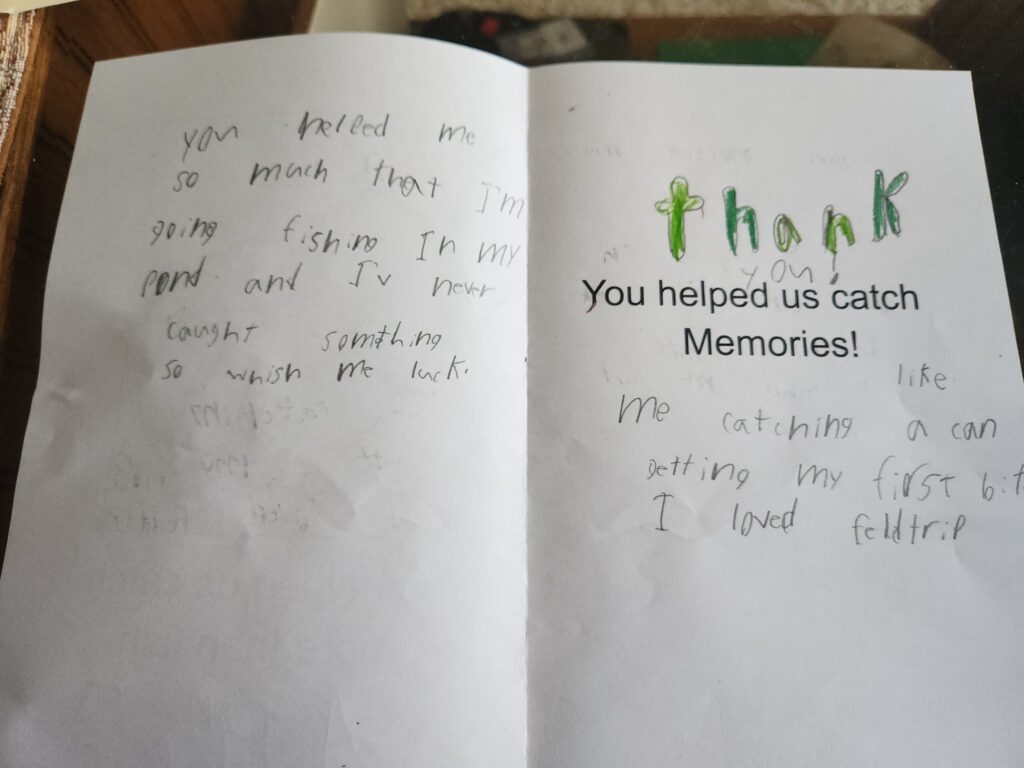 you helled me
so much that I'm
going fishing In my
pond and I'v never
caught somthing
so whish me luck.
thank
you!
You helped us catch
Memories!
like
me catching a can
getting my first bit
I loved feldtrip